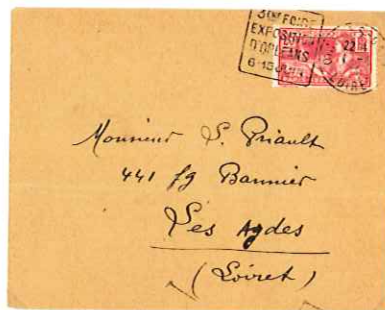 3eme FOIRE
EXPOSITION
D'ORLEANS
6-15 JUIN
22
LOIRET
Monsieur S. Priault
441 fg Bannier
Les Aydes
(Loiret)